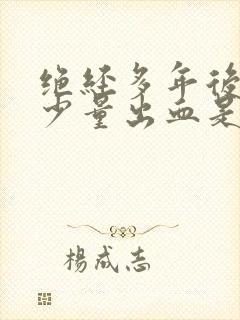 绝经多年後
少量出血是
楊成志